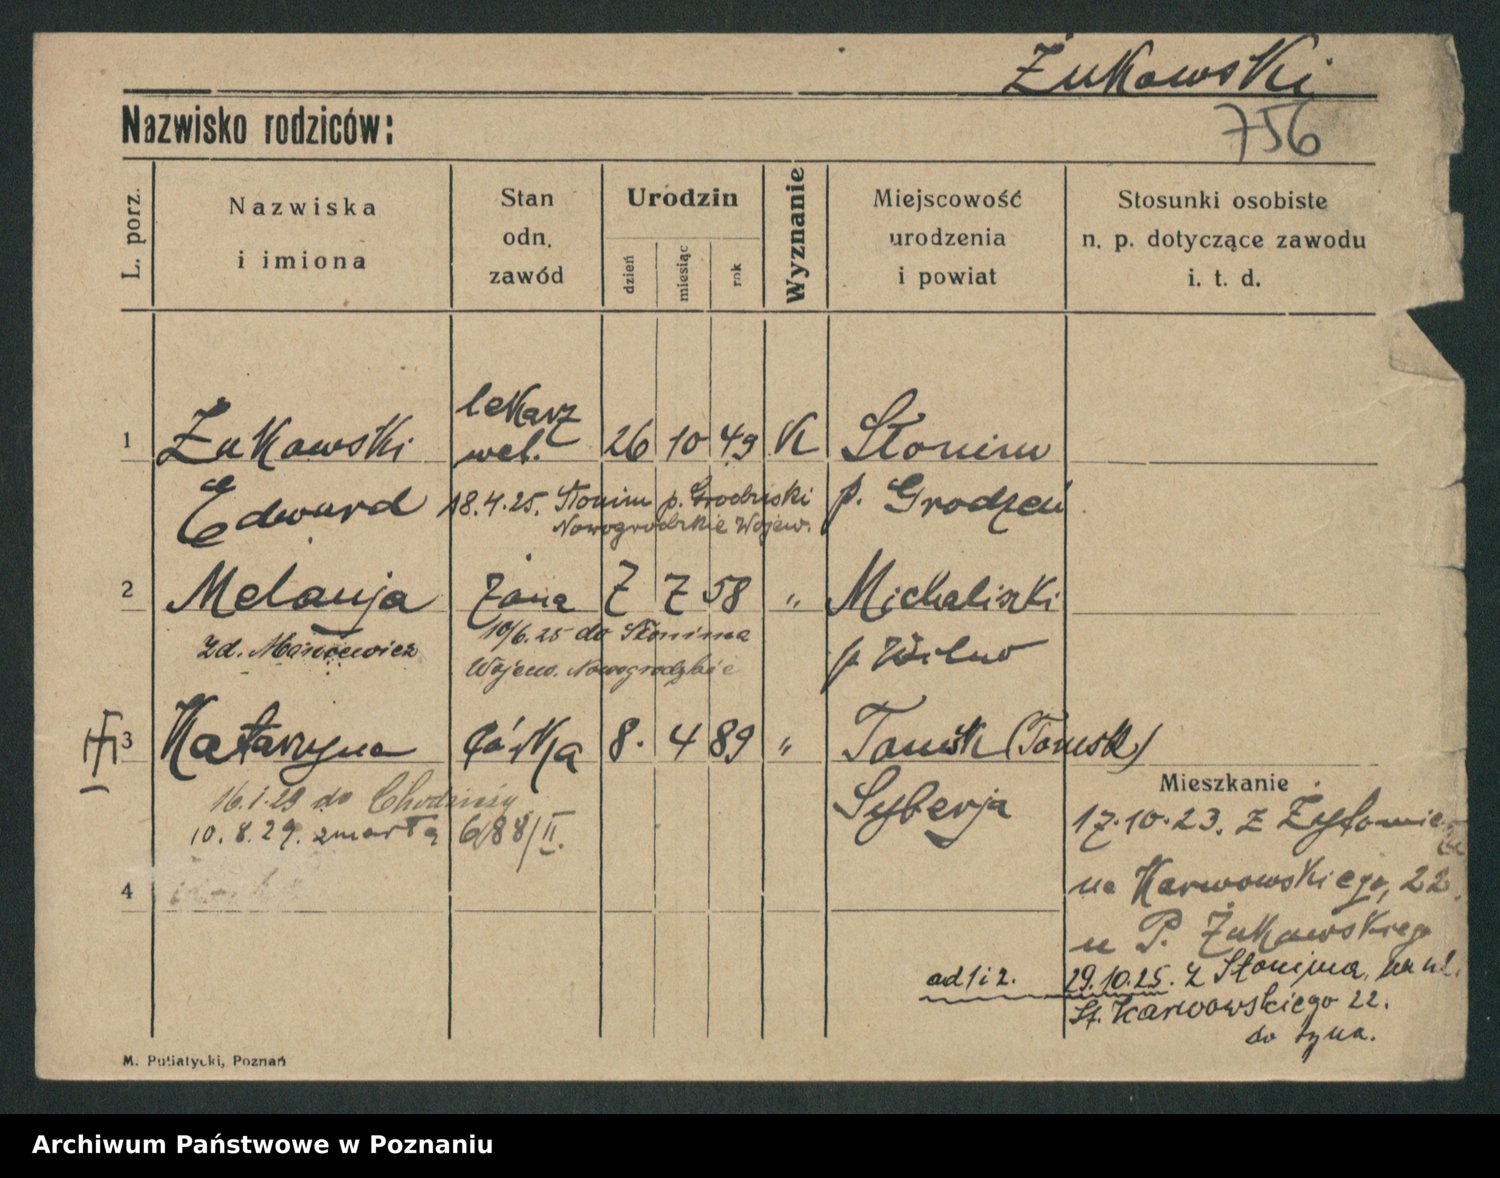 Żukowski
Nazwisko rodziców:
756
L. porz.
Nazwiska
i imiona
Stan
odn.
zawód
Urodzin
dzień
miesiąc
rok
Wyznanie
Miejscowość
urodzenia
i powiat
Stosunki osobiste
n. p. dotyczące zawodu
i. t. d.
1 Żukowski lekarz wet. 26 10 49 K Słonim
Edward 18.4.25. Słonim p. Grodzieński p. Grodzeń
Nowogrodzkie Wojew.
2 Melanja żona 7 7 58 " Michaliszki
zd. 10/6.25 do Słonima p Wilno
Wojew. Nowogrodzkie
3 Katarzyna córka 8. 4 89 " Tomsk (Tomsk)
16.1.29 do Chodzieży Syberja
10.8.29. zmarła 6/88/II.
4
Mieszkanie
17.10.23. z Żytomierza
na Karwowskiego, 22
u P. Żukowskiego
ad 1 i 2. 29.10.25. z Słonima, na ul.
St. Karwowskiego 22.
do syna.
M. Putiatycki, Poznań
Archiwum Państwowe w Poznaniu